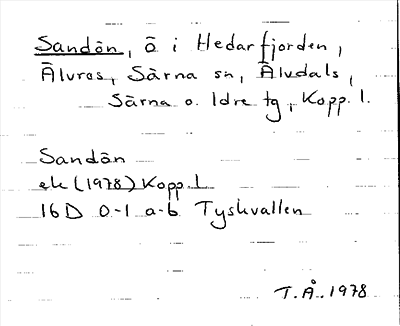 Sandön, ö i Hedarfjorden,
Älvros, Särna sn, Älvdals,
Särna o. Idre tg, Kopp. l.
Sandön
ek (1978) Kopp. l
16D 0-1 a-b Tyskvallen
T.Å. 1978